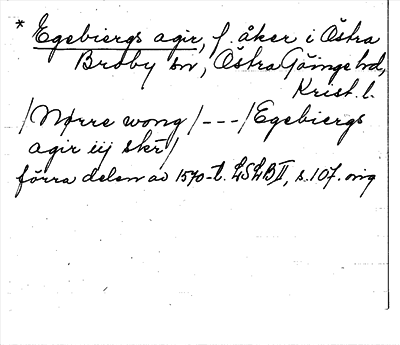 * Egebiergs agir, f. åker i Östra
Broby sn, Östra Göinge hd,
Krist. l.
/Nørre wong/---/Egebiergs
agir iij skr/
förra delen av 1570-t. LSLB II, s. 107. orig